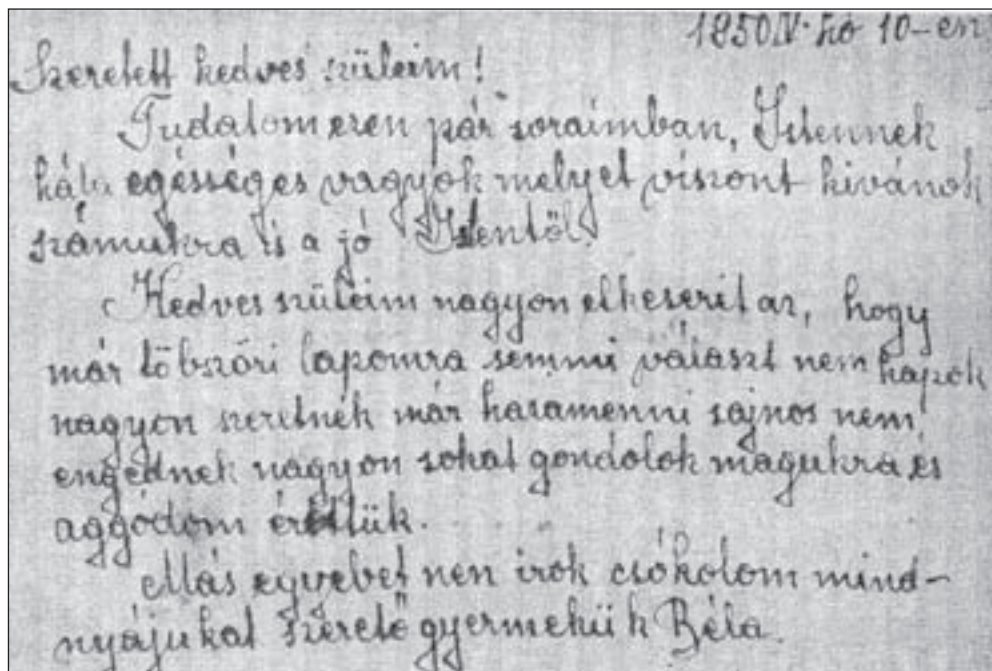 1950 IV. hó 10-én
Szeretett kedves szüleim!
Tudatom ezen pár soraimban, Istennek
hála egésséges vagyok melyet viszont kivánok
számukra is a jó Istentől.
Kedves szüleim nagyon elkeserit az, hogy
már többszöri lapomra semmi választ nem kapok
nagyon szeretnék már hazamenni sajnos nem
engednek nagyon sokat gondolok magukra és
aggódom érettük.
Más egyebet nen irok csókolom mind-
nyájukat szerető gyermekük Béla.